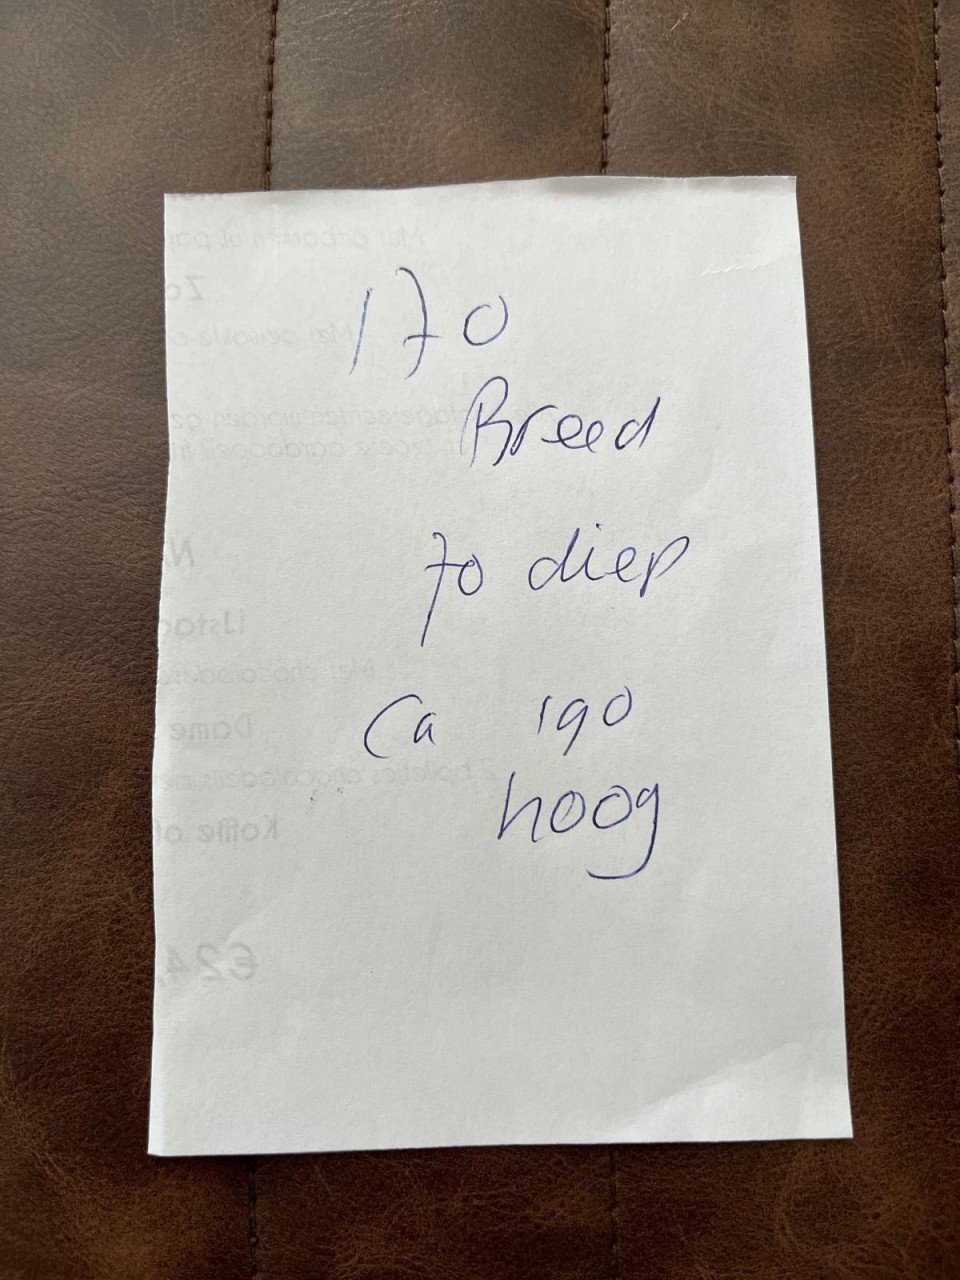 170
Breed
70 diep
Ca 190
hoog